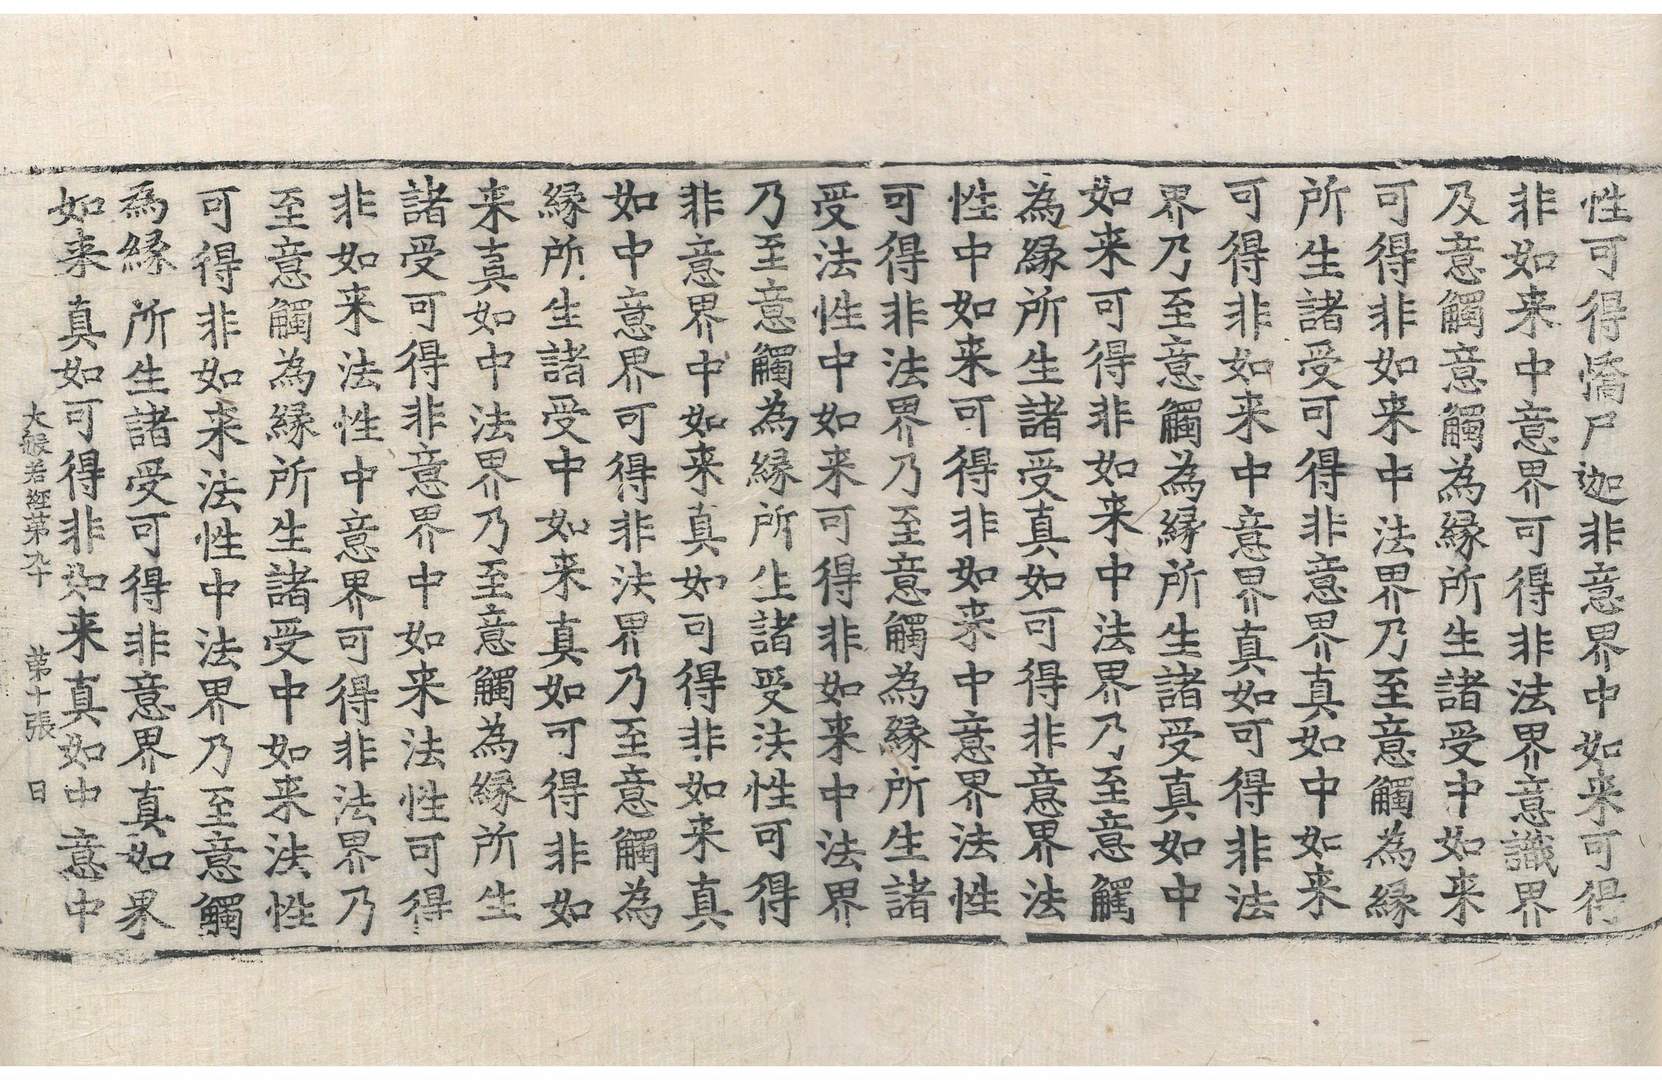 性可得憍尸迦非意界中如来可得
非如来中意界可得非法界意識界
及意觸意觸為縁所生諸受中如来
可得非如来中法界乃至意觸為縁
所生諸受可得非意界真如中如来
可得非如来中意界真如可得非法
界乃至意觸為縁所生諸受真如中
如来可得非如来中法界乃至意觸
為縁所生諸受真如可得非意界法
性中如来可得非如来中意界法性
可得非法界乃至意觸為縁所生諸
受法性中如来可得非如来中法界
乃至意觸為縁所生諸受法性可得
非意界中如来真如可得非如来真
如中意界可得非法界乃至意觸為
縁所生諸受中如来真如可得非如
来真如中法界乃至意觸為縁所生
諸受可得非意界中如来法性可得
非如来法性中意界可得非法界乃
至意觸為縁所生諸受中如来法性
可得非如来法性中法界乃至意觸
為縁所生諸受可得非意界真如果
如来真如可得非如来真如中意中
大般若經第九十 第十張 日